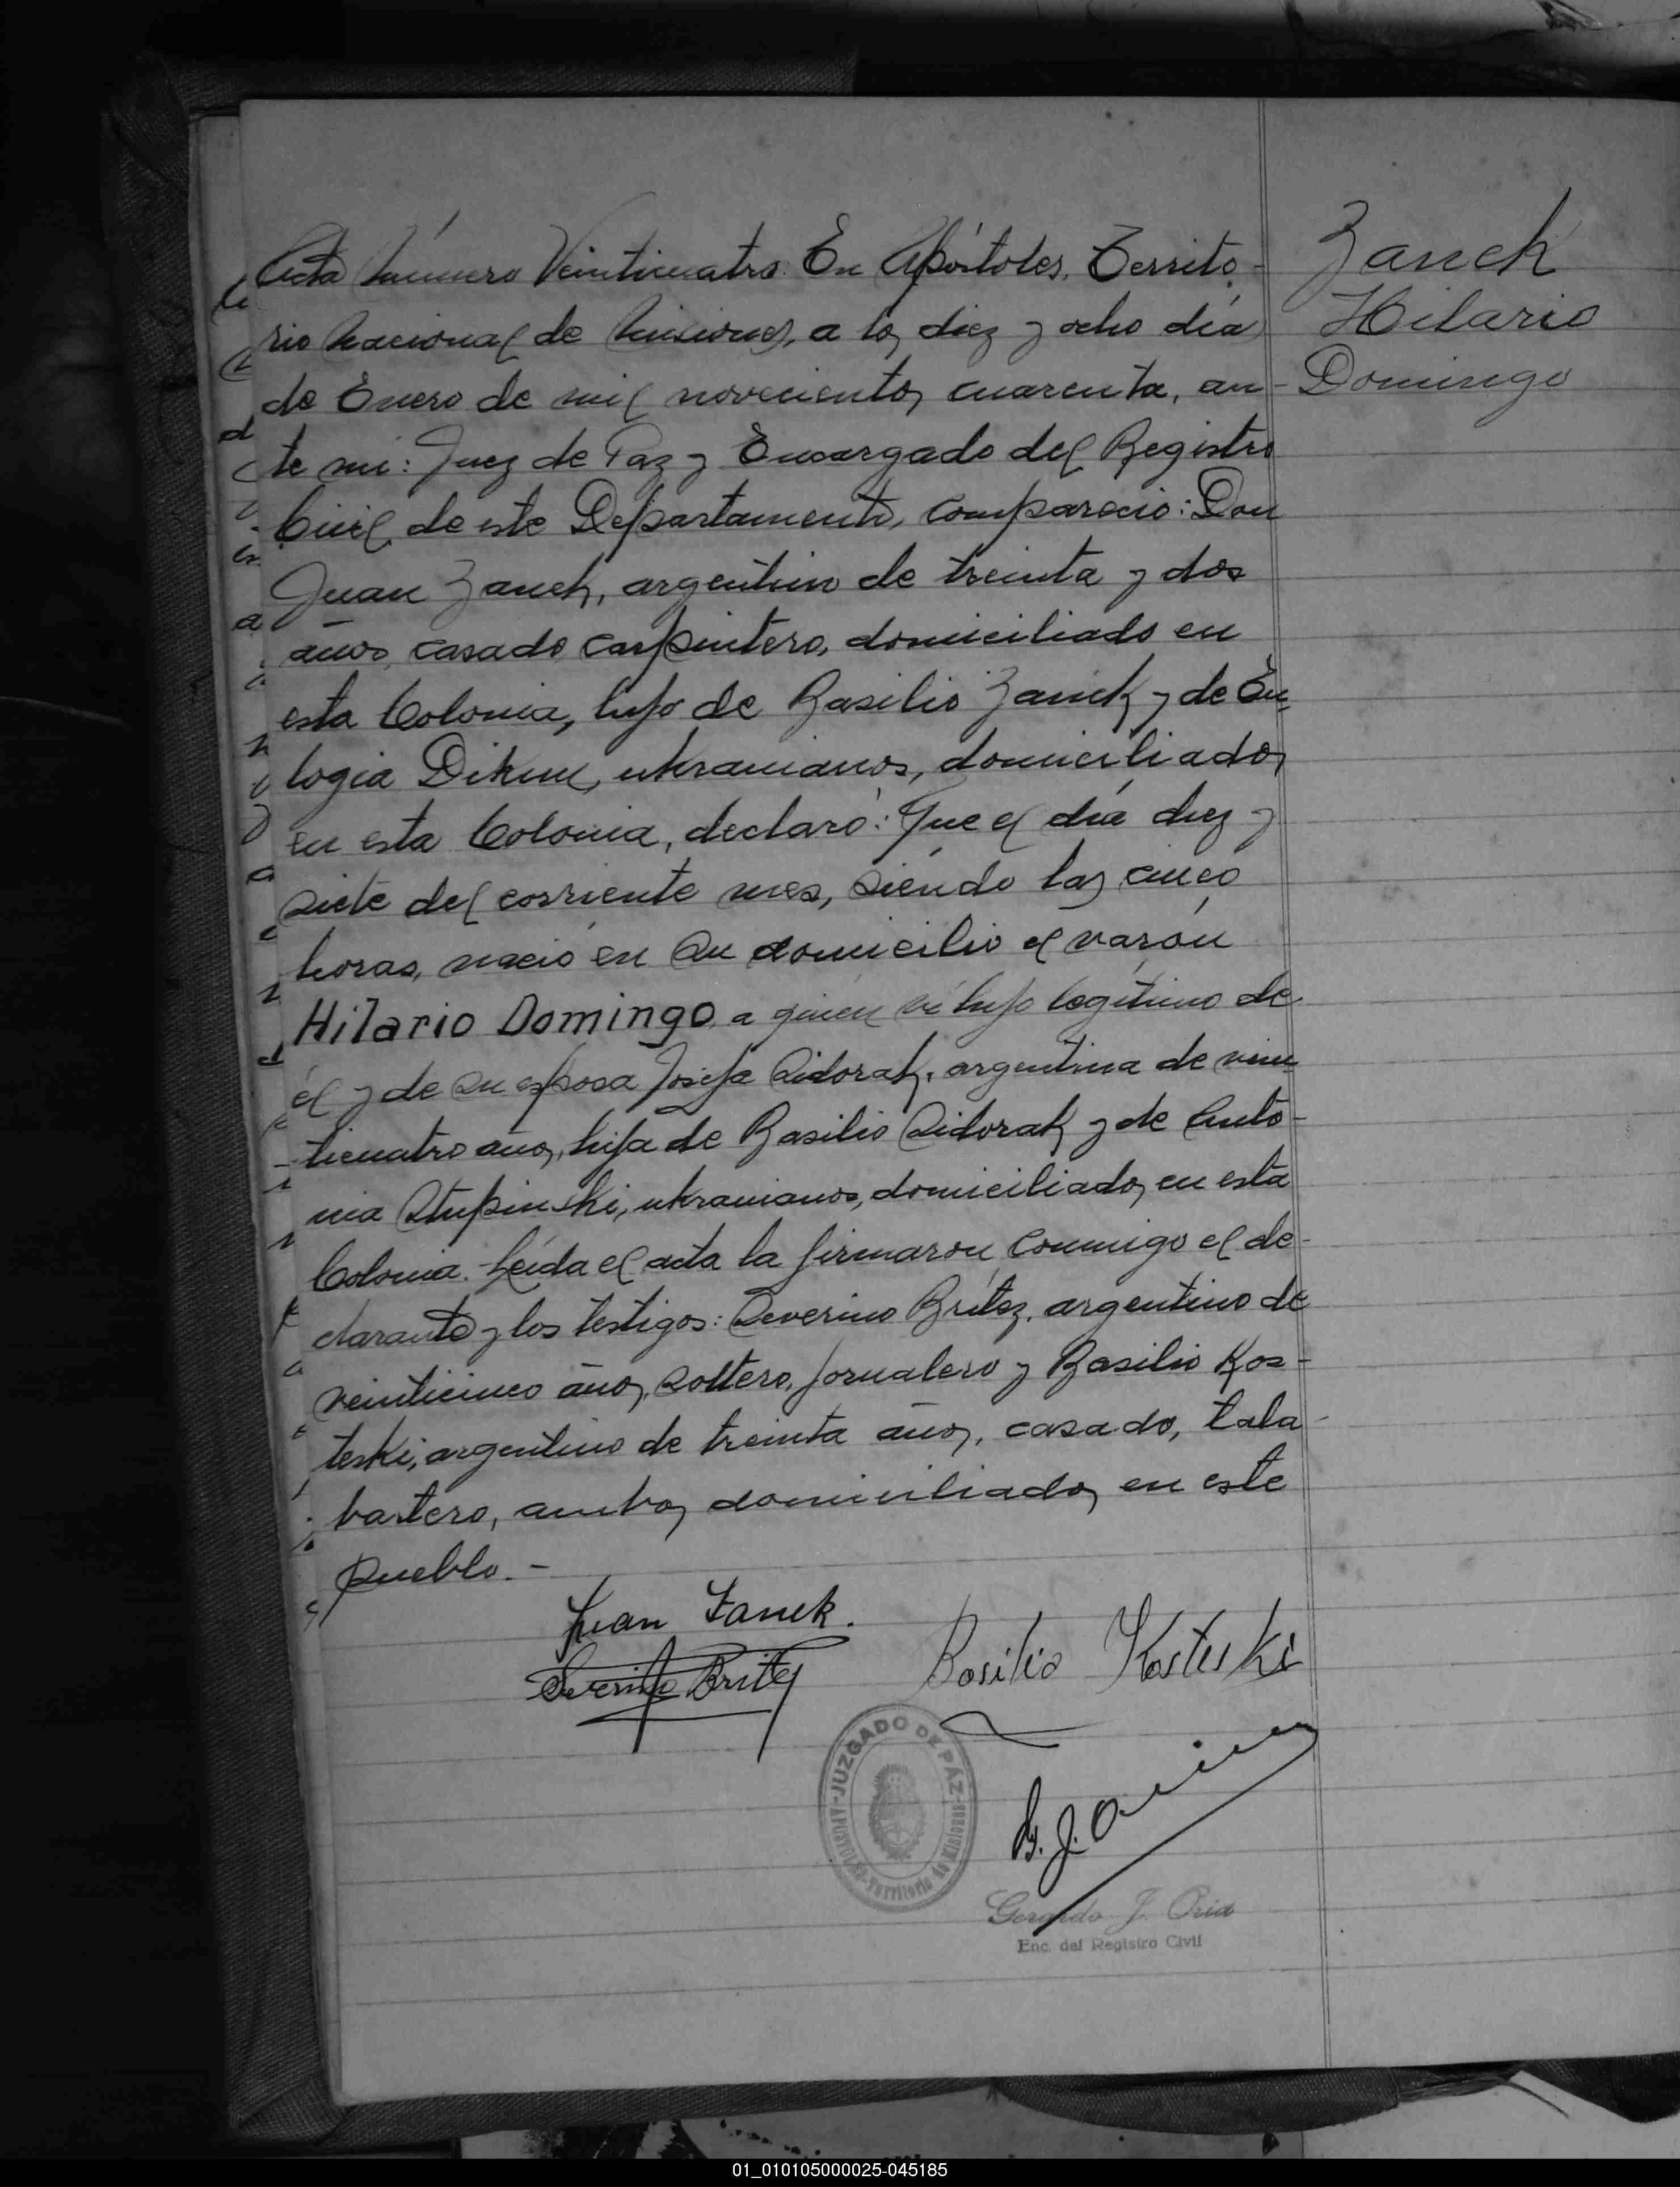 Acta Número Veinticuatro: En Apóstoles, Territo-
rio Nacional de Misiones, a los diez y ocho días
de Enero de mil novecientos cuarenta, an-
te mi: Juez de Paz y Encargado del Registro
Civil de este Departamento, compareció: Don
Juan Zanek, argentino de treinta y dos
años, casado carpintero, domiciliado en
esta Colonia, hijo de Basilio Zanek y de Eu-
logia Dikun, ukranianos, domiciliados
en esta Colonia, declaró: Que el día diez y
siete del corriente mes, siendo las cinco
horas, nació en su domicilio el varón
Hilario Domingo, a quien vi hijo legítimo de
él y de su esposa Josefa Sidorak, argentina de vein-
ticuatro años, hija de Basilio Sidorak y de Anto-
nia Stupinski, ukranianos, domiciliados en esta
Colonia. Leída el acta la firmaron conmigo el de-
clarante y los testigos: Severino Brítez, argentino de
veinticinco años, soltero, jornalero y Basilio Kos-
teski, argentino de treinta años, casado, tala-
bartero, ambos domiciliados en este
pueblo.-
Zanek
Hilario
Domingo
Juan Zanek.
Severino Britez
Basilio Kosteski
JUZGADO DE PAZ
APOSTOLES - Territorio de Misiones
G. J. Oria
Gerardo J. Oria
Enc. del Registro Civil
01_010105000025-045185